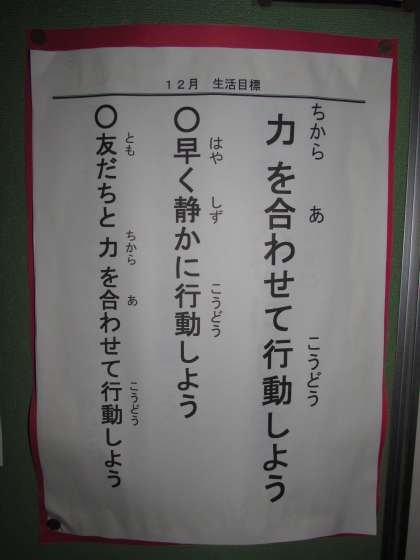 12月 生活目標
力を合わせて行動しよう
ちから あ こうどう
○早く静かに行動しよう
はや しず こうどう
○友だちと力を合わせて行動しよう
とも ちから あ こうどう